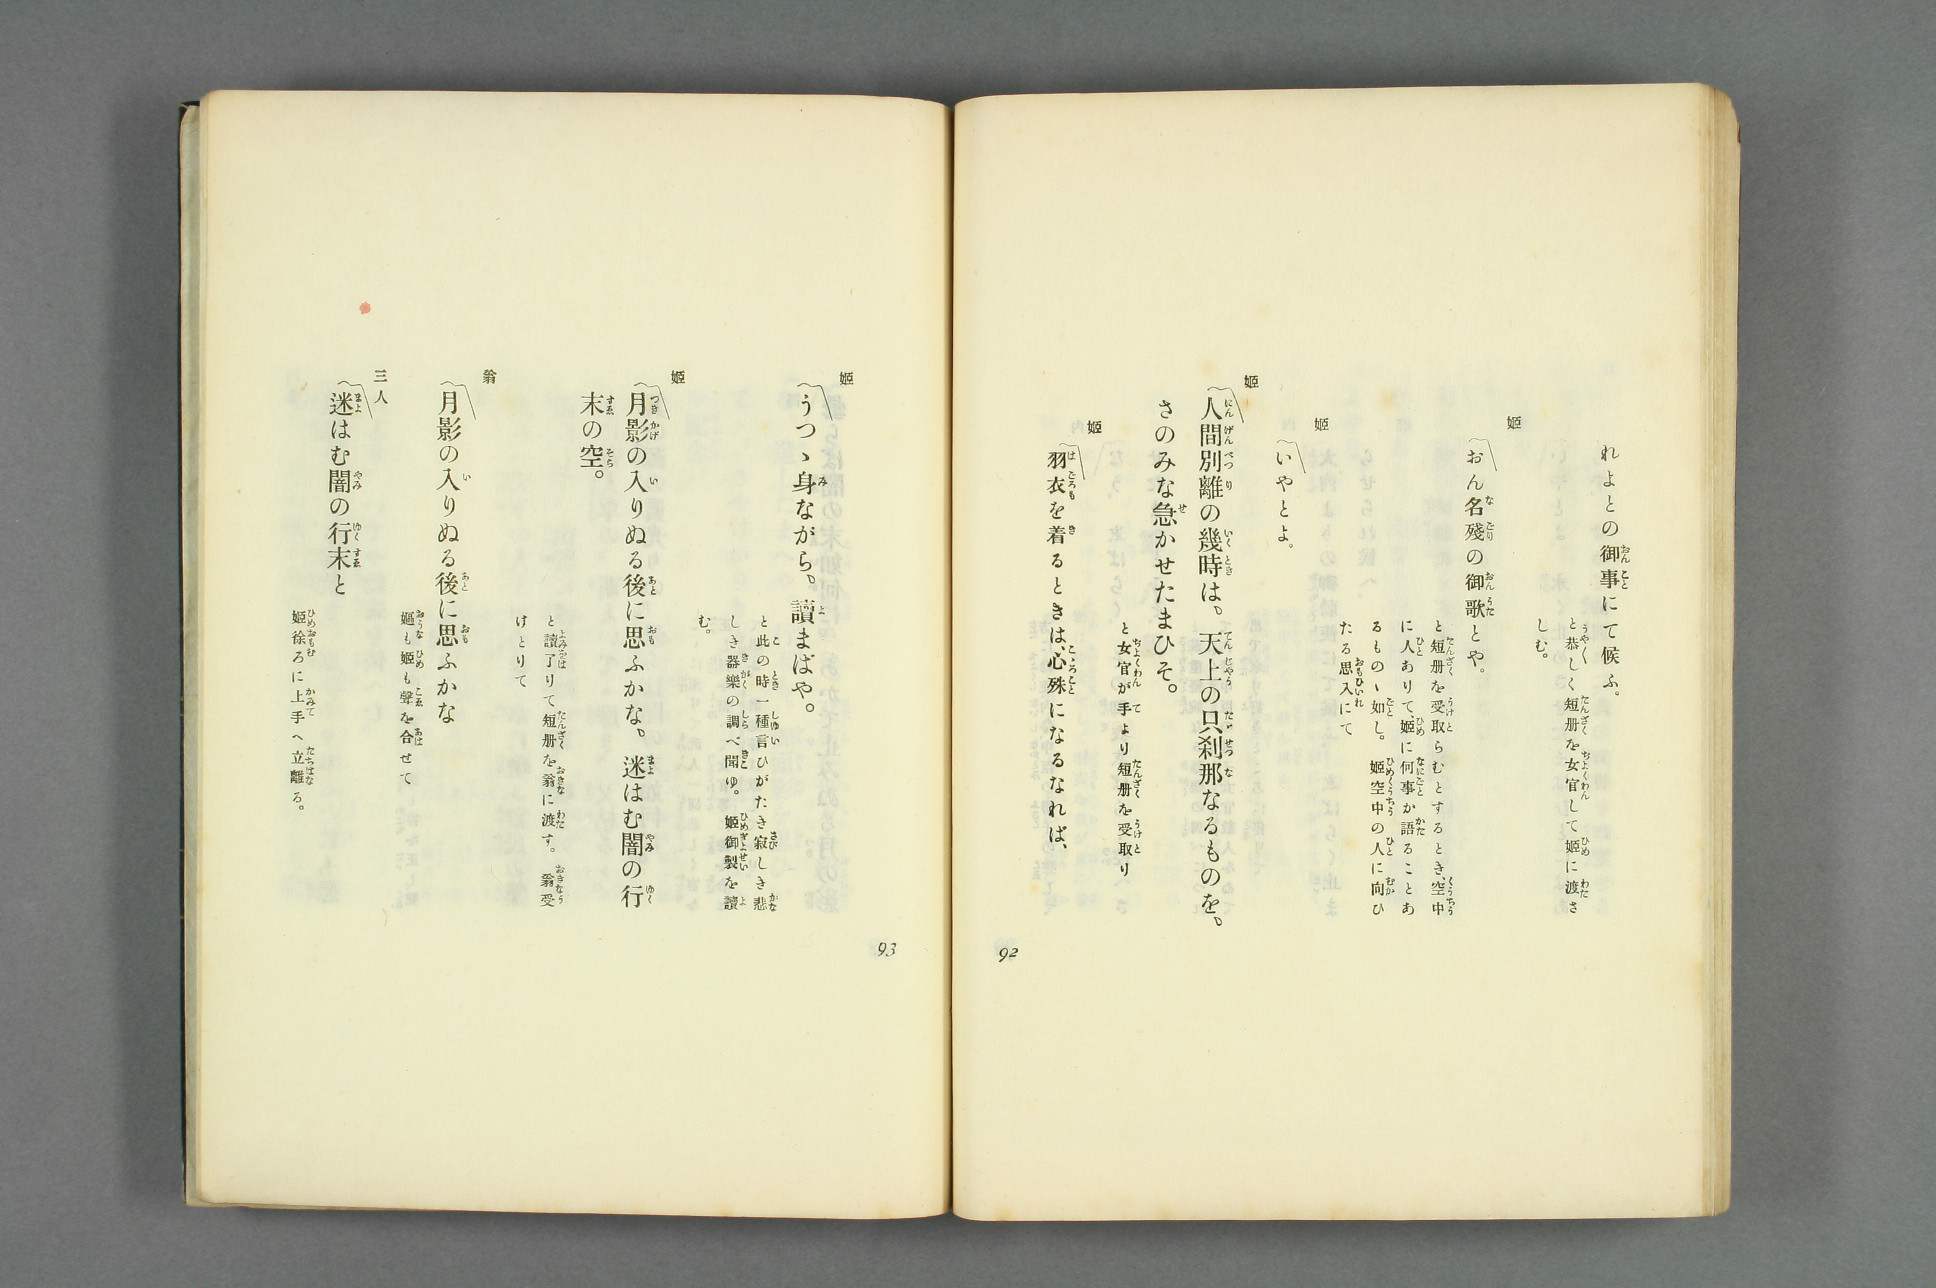 れよとの御事にて候ふ。
と恭しく短册を女官して姫に渡さ
しむ。
姫
おん名殘の御歌とや。
と短册を受取らむとするとき、空中
に人ありて、姫に何事か語ることあ
るものゝ如し。姫空中の人に向ひ
たる思入にて
姫
いやとよ。
姫
人間別離の幾時は、天上の只刹那なるものを、
さのみな急かせたまひそ。
と女官が手より短册を受取り
姫
羽衣を着るときは、心殊になるなれば、
92
姫
うつゝ身ながら、讀まばや。
と此の時一種言ひがたき寂しき悲
しき器樂の調べ聞ゆ。姫御製を讀
む。
姫
月影の入りぬる後に思ふかな、迷はむ闇の行
末の空。
と讀了りて短册を翁に渡す。翁受
けとりて
翁
月影の入りぬる後に思ふかな
嫗も姫も聲を合せて
三人
迷はむ闇の行末と
姫徐ろに上手へ立離る。
93